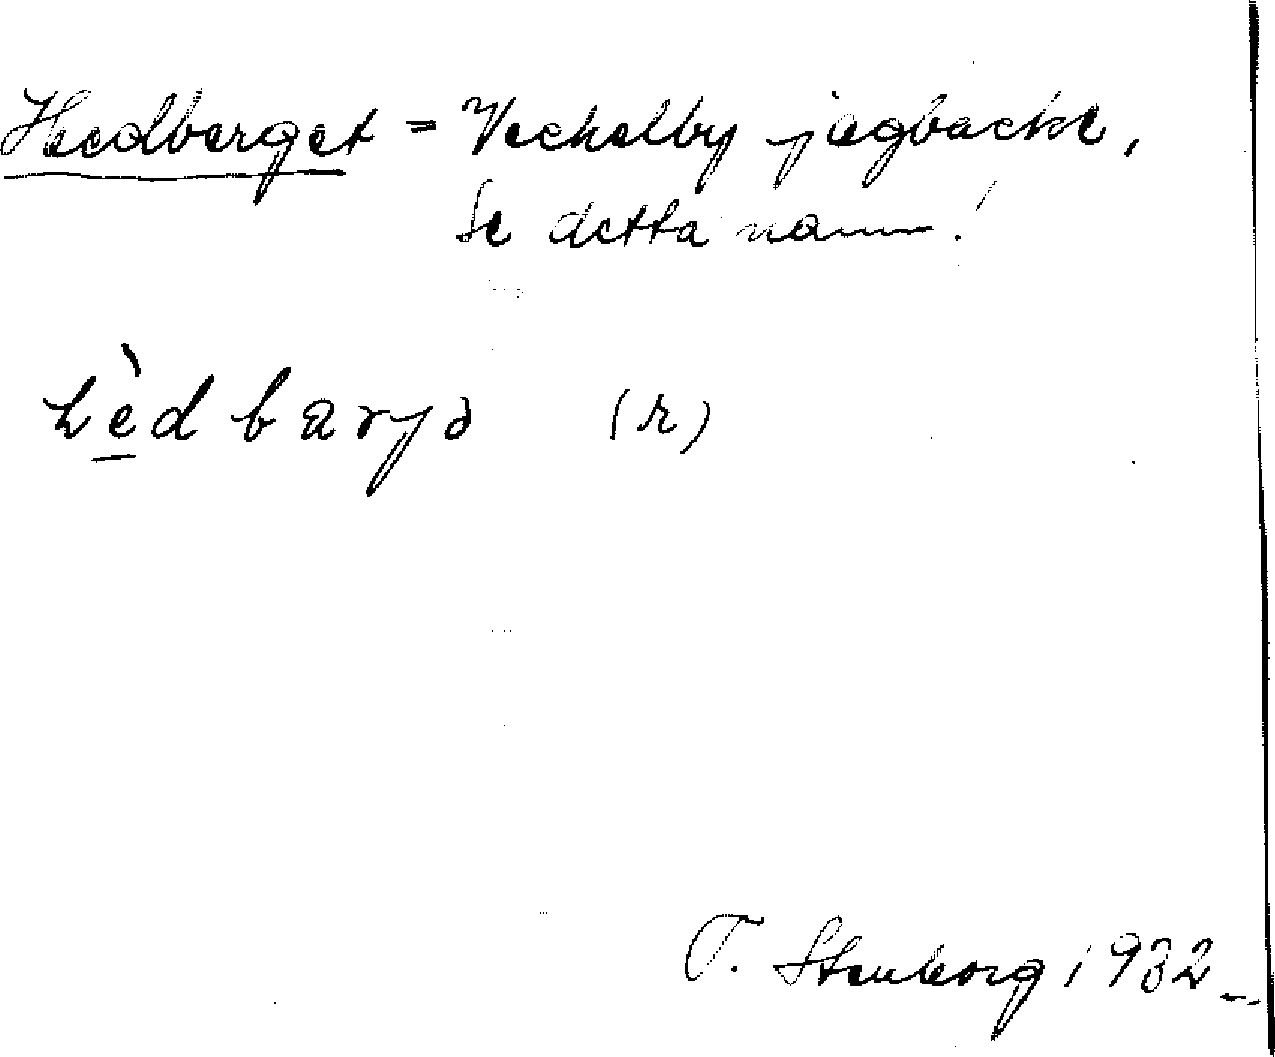 Hedberget = Veckelby jagbacke,
Se detta namn!
hèdbarjə (r)
T. Stenborg 1932